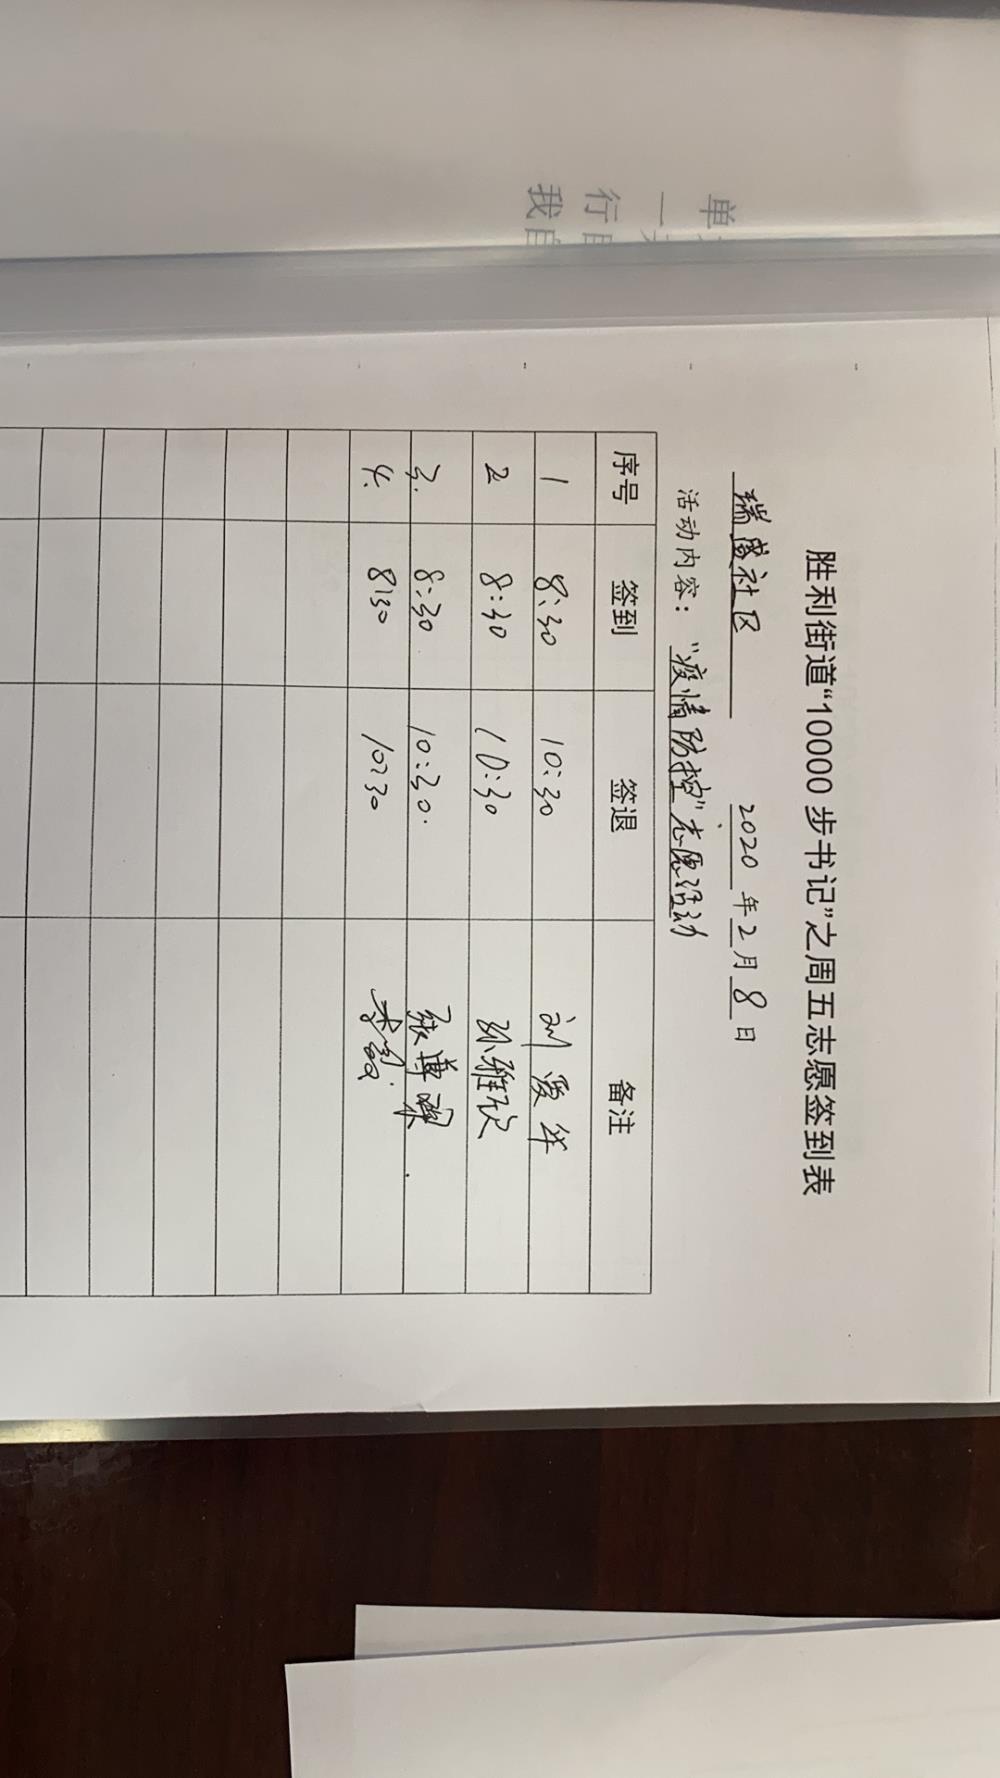 胜利街道“10000步书记”之周五志愿签到表
瑞盛社区 2020年2月8日
活动内容：“疫情防控”志愿活动
序号 签到 签退 备注
1 8:30 10:30 刘爱华
2 8:30 10:30 孙雅欣
3. 8:30 10:30. 张博
4. 8:30 10:30
单
一
行
我